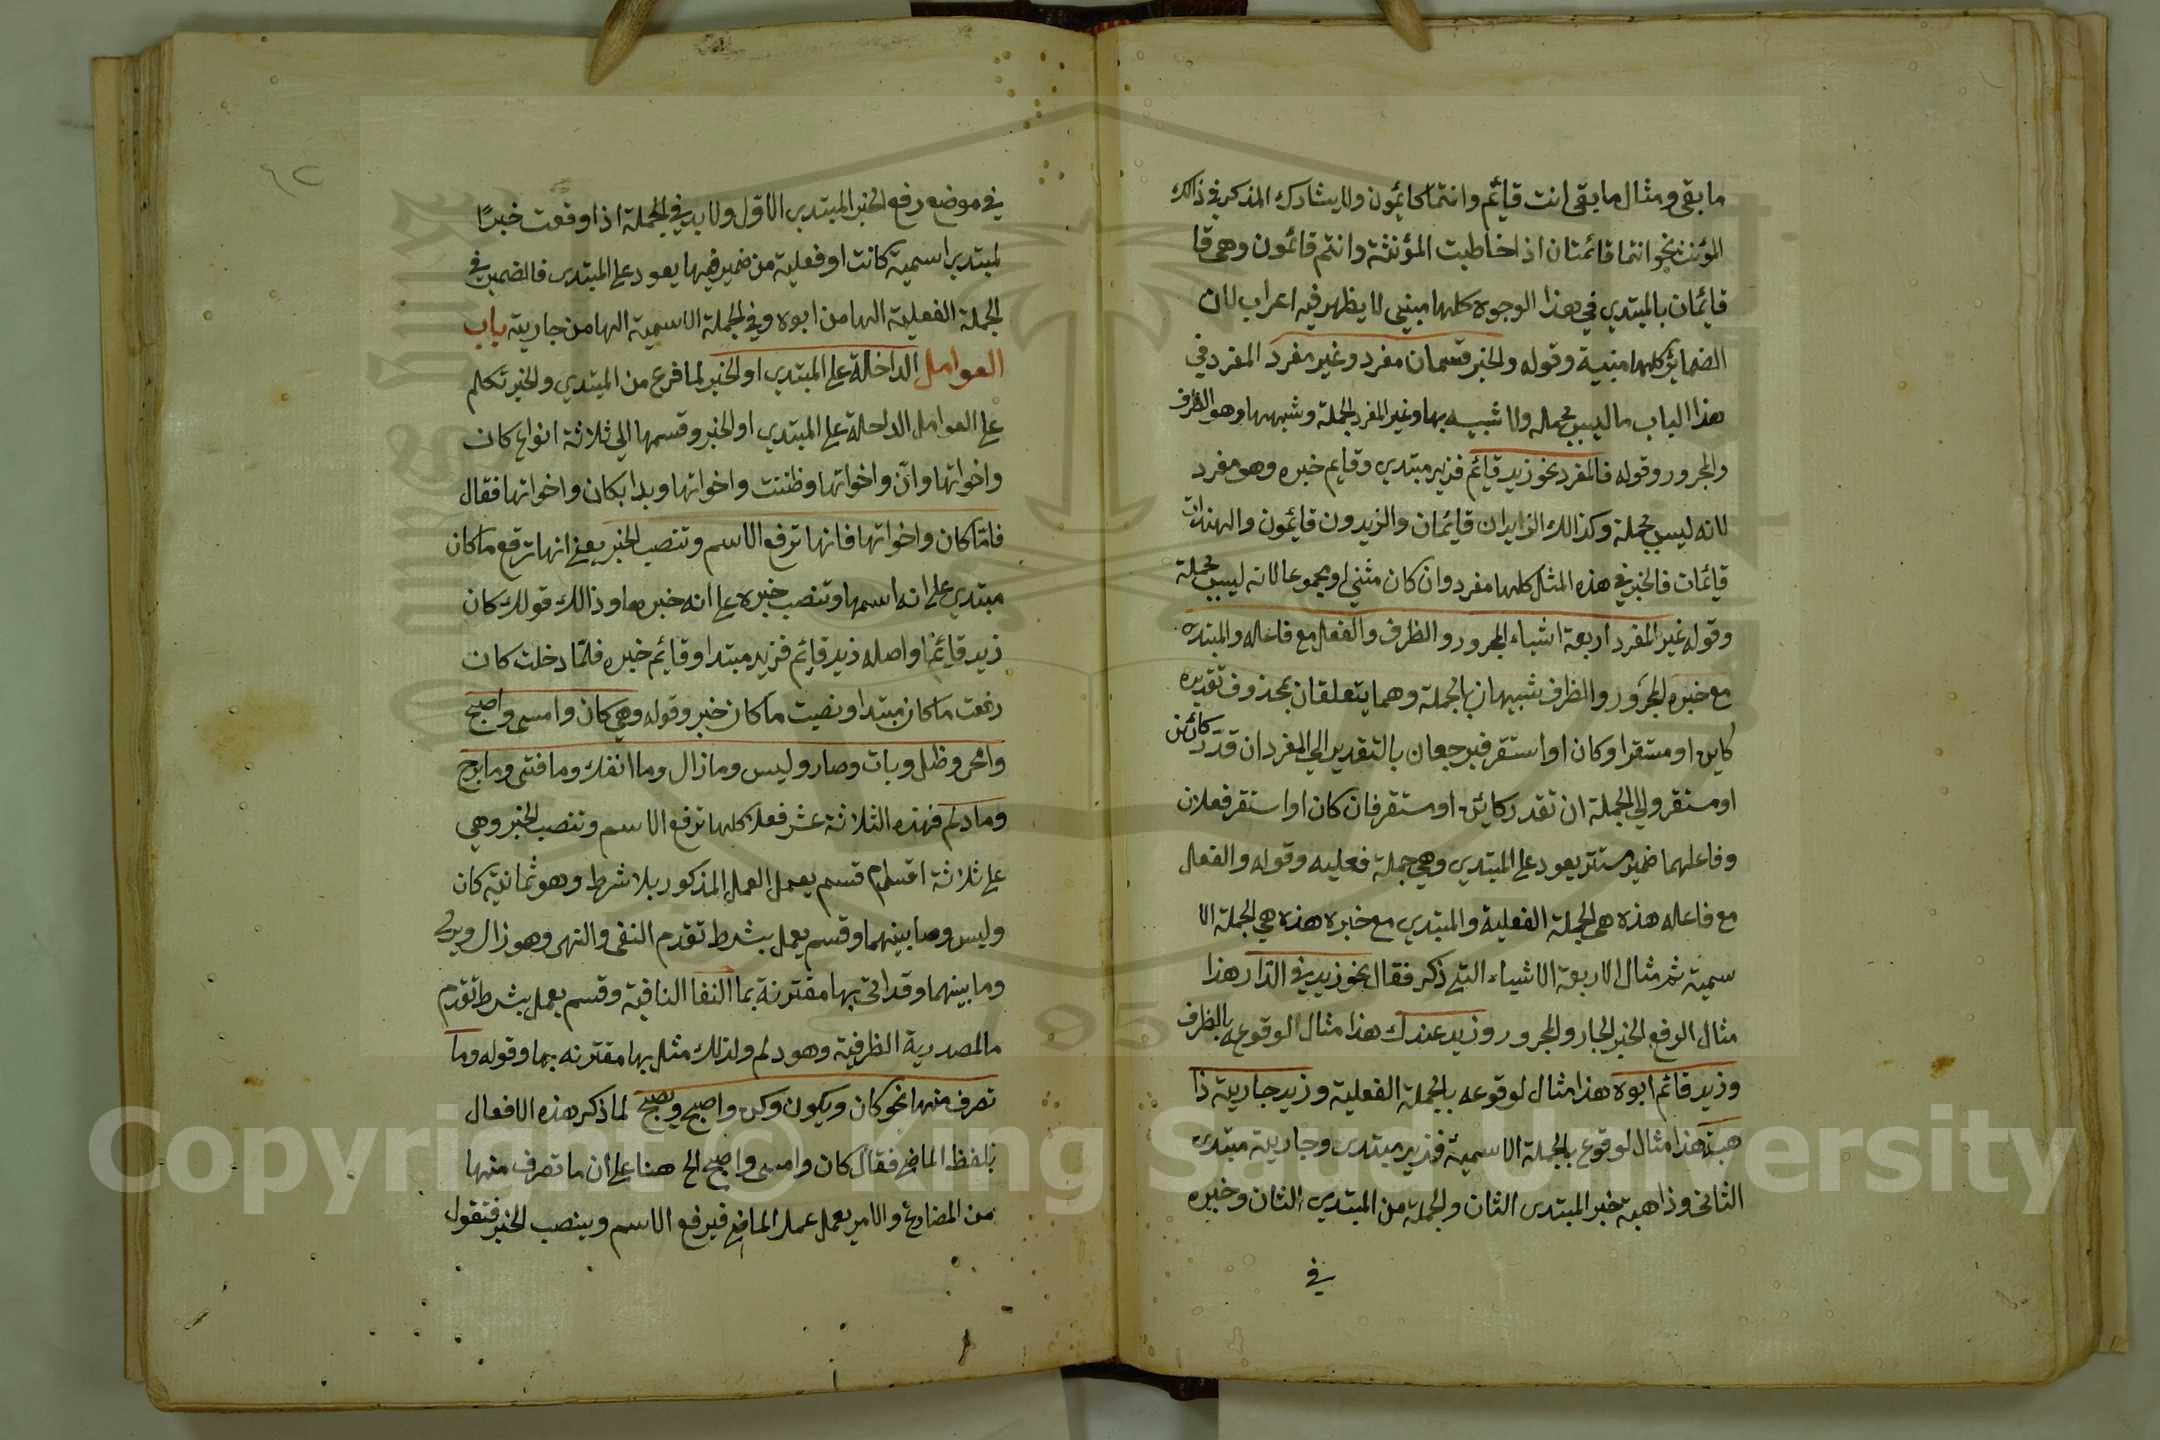 ما بقى ومثال ما بقى انت قايم وانتما كايمون ولا يشارك المذكر في ذالك
المؤنث نحو انتما قائمتان اذا خاطبت المؤنثة وانتم قائمون وهى قا
قايمان بالمبتدي في هذا الوجوه كلها مبني لا يظهر فيه اعراب لان
الضماير كلها مبنية وقوله والخبر قسمان مفرد وغير مفرد المفرد في
هذا الباب ما ليس بجمله ولا شبيه بها وغير المفرد الجملة وشبهها وهو الظرف
والمجرور وقوله فالمفرد نحو زيد قائم فزيد مبتدي وقايم خبره وهو مفرد
لانه ليس بجملة وكذالك الزايدان قايمان والزيدون قايمون والهندات
قايمات فالخبر في هذه المثل كلها مفرد وان كان مثنى او مجموعا لانه ليس بجملة
وقوله غير المفرد اربعة اشياء المجرور والظرف والفعل مع فاعله والمبتدى
مع خبره المجرور والظرف شبيهان بالجملة وهما يتعلقان بمحذوف تقديره
كاين او مستقر او كان او استقر فيرجعان بالتقدير الى المفرد ان قدر كائن
او مستقر والى الجملة ان تقدر كاين او مستقر فان كان او استقر فعلان
وفاعلهما ضمير مستتر يعود على المبتدي وهي جملة فعليه وقوله والفعل
مع فاعله هذه هى الجملة الفعلية والمبتدي مع خبره هذه هي الجملة الا
سمية ثم مثال الاربعة الاشياء التي ذكر فقال نحو زيد في الدار هذا
مثال الوقع الخبر الجار والمجرور وزيد عندك هذا مثال الوقوعه بالظرف
وزيد قائم ابوه هذا مثال لوقوعه بالجملة الفعلية وزيد جاريتة ذا
هبة هذا مثال لوقوع بالجملة الاسمية فزيد مبتدى وجاريتة مبتدى
الثاني وذاهبة خبر المبتدى الثان والجملة من المبتدي الثان وخبره
في
في موضع رفع الخبر المبتدي الاول ولا بد في الجملة اذا وقعت خبرًا
لمبتدي اسمية كانت او فعلية من ضمير فيها يعود على المبتدى فالضمير في
الجملة الفعلية الها من ابوه وفي الجملة الاسمية الها من جاريتة باب
العوامل الداخلة على المبتدي او الخبر لما فرغ من المبتدي والخبر تكلم
على العوامل الداخلة على المبتدي او الخبر وقسمها الى ثلاثة انواع كان
واخواتها وان واخواتها وظننت واخواتها وبدا بكان واخواتها فقال
فاما كان واخواتها فانها ترفع الاسم وتنصب الخبر يعني انها ترفع ما كان
مبتدي على انه اسمها وتنصب خبره على انه خبرها وذالك قولك كان
زيد قائما واصله زيد قايم فزيد مبتدا وقايم خبره فلما دخلت كان
رفعت ما كان مبتدا ونصبت ما كان خبر وقوله وهي كان وامسى واصبح
واضحى وظل وبات وصار وليس وما زال وما انفك وما فتى وما برح
وما دام فهذه الثلاثة عشر فعلا كلها ترفع الاسم وتنصب الخبر وهي
على ثلاثة اقسام قسم يعمل العمل المذكور بلا شرط وهو ثمانية كان
وليس وما بينهما وقسم يعمل بشرط تقدم النفى والنهى وهو زال وبرح
وما بينهما وقد اتى بها مقترنة بما النفا النافية وقسم يعمل بشرط تقدم
ما المصدرية الظرفية وهو دام ولذلك مثل بها مقترنه بها وقوله وما
تصرف منها نحو كان ويكون وكن واصبح ويصبح لما ذكر هذه الافعال
بلفظ الماضي فقال كان وامسى واصبح الخ هنا على ان ما تصرف منها
من المضارع والامر يعمل عمل الماضي فيرفع الاسم وينصب الخبر فتقول
Copyright © King Saud University